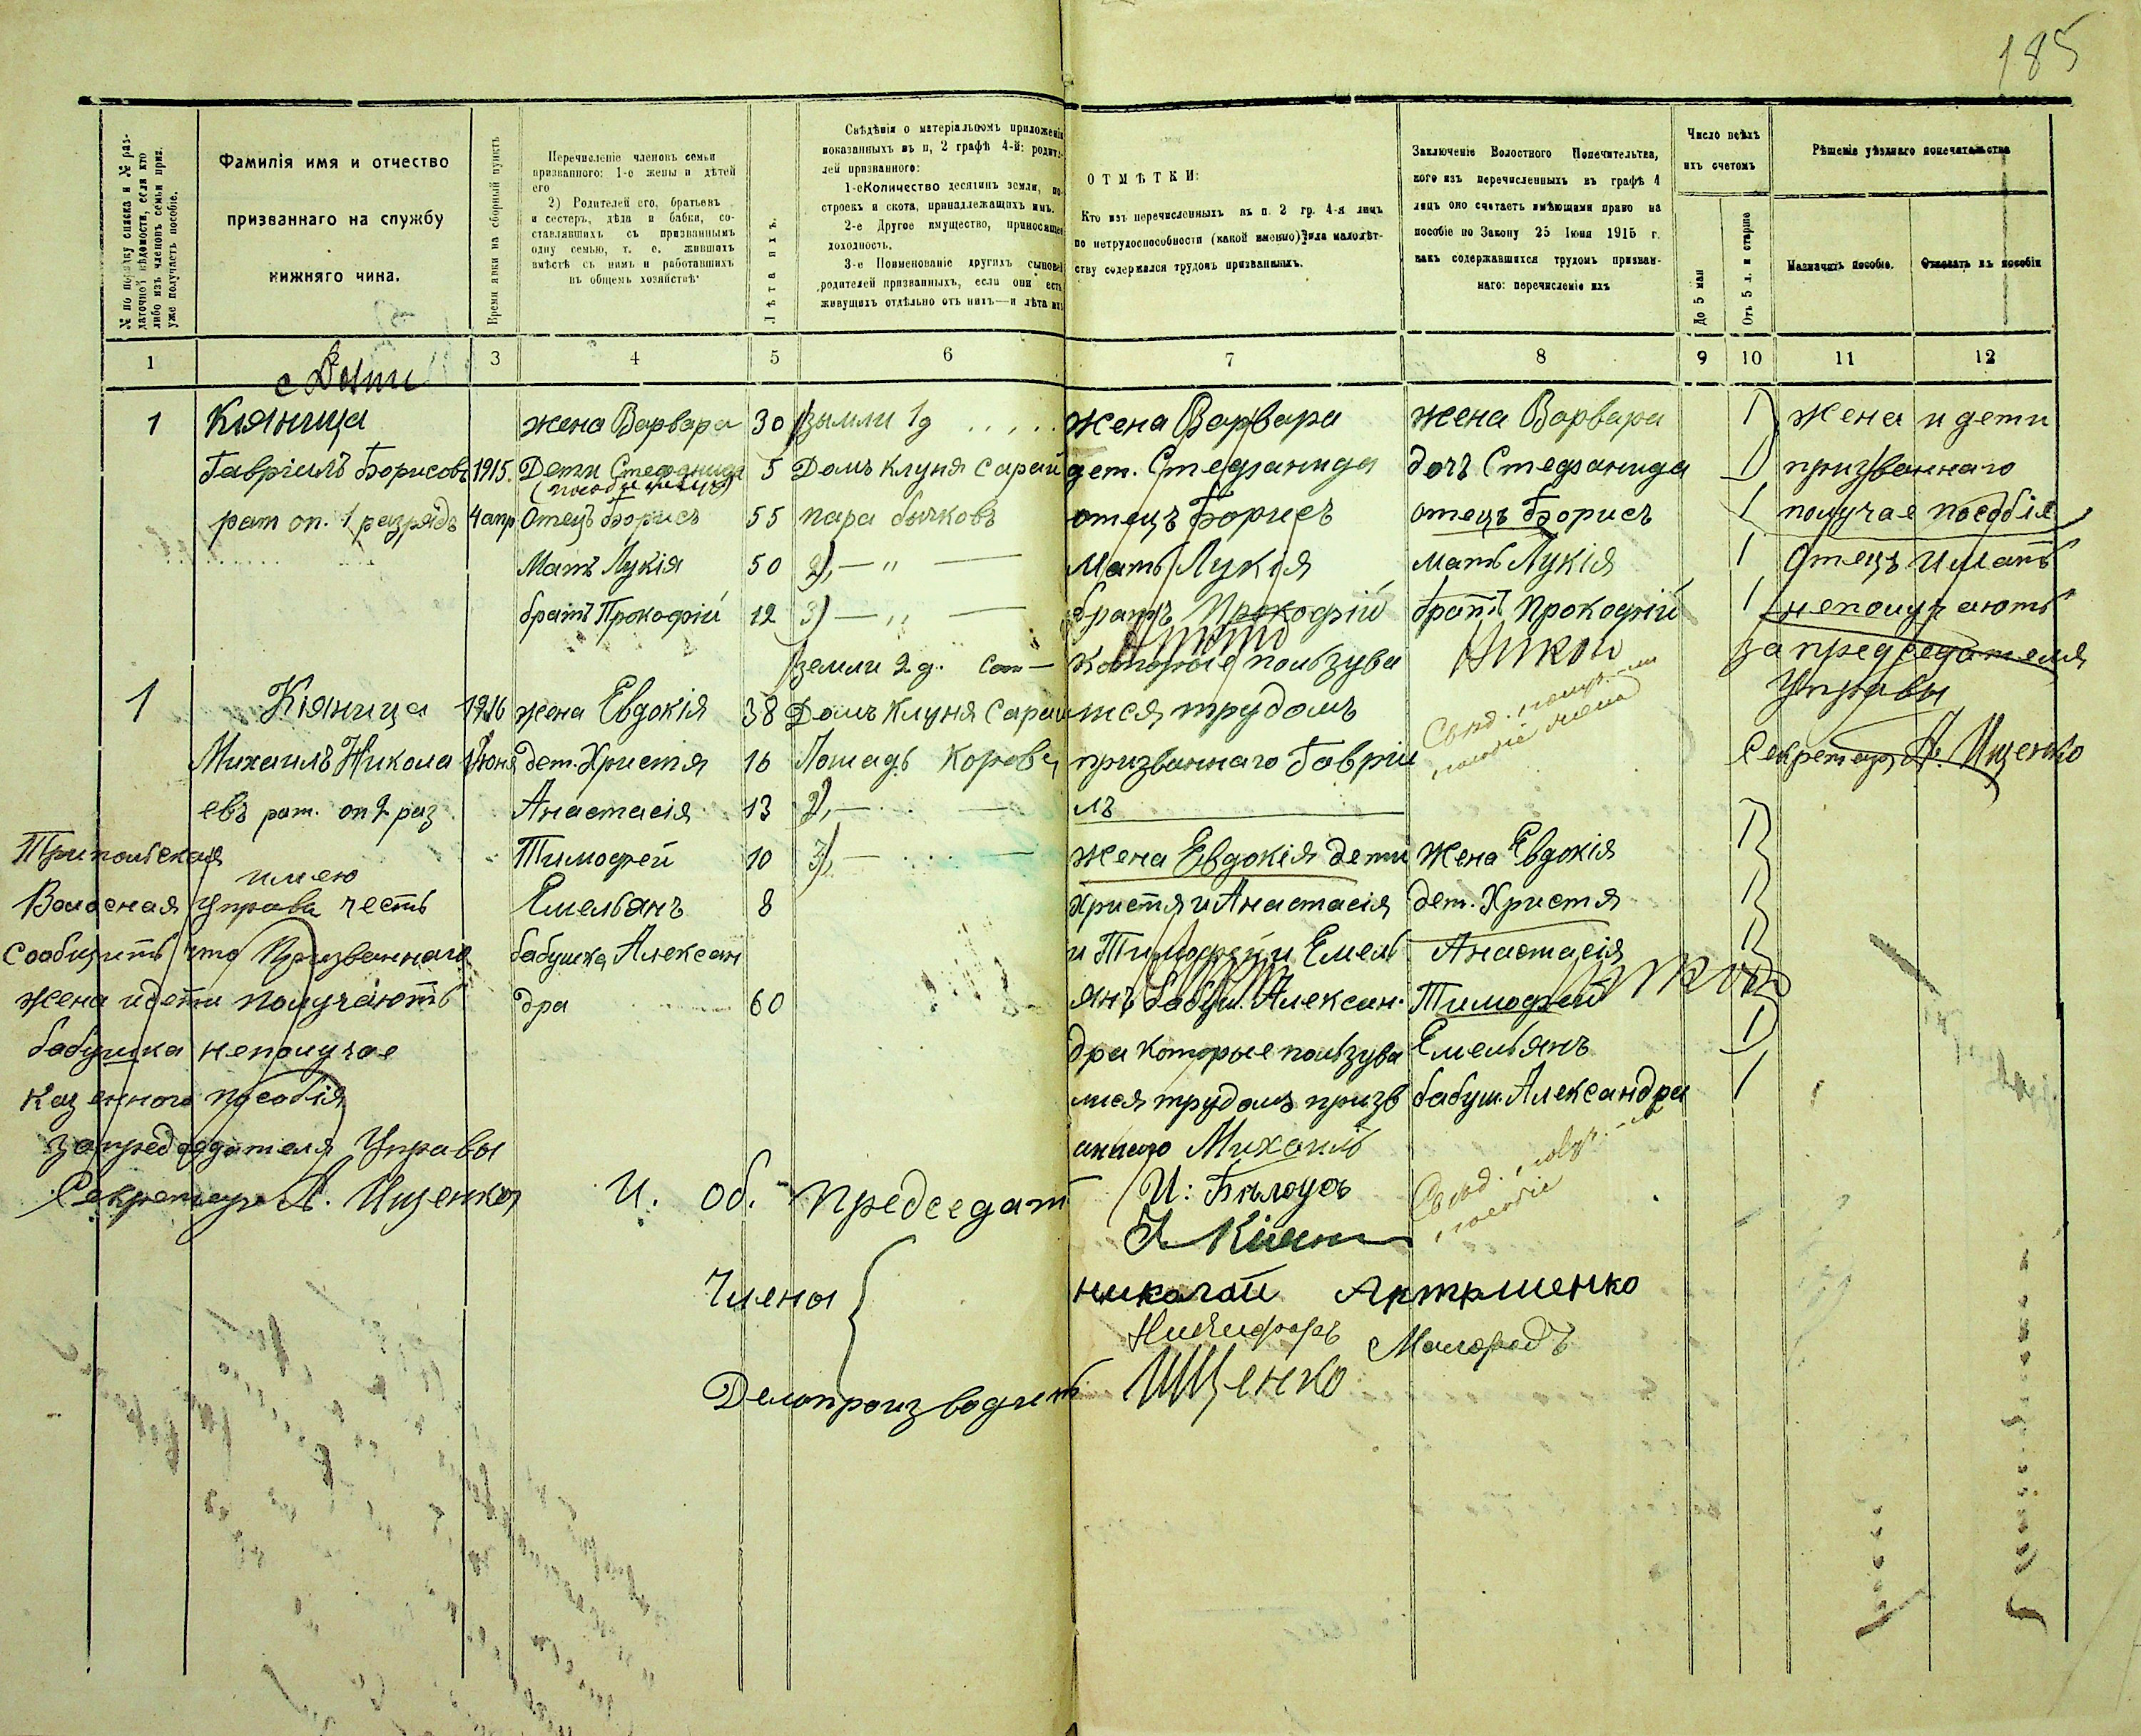 185
№ по порядку списка и № раз-
даточной вѣдомости, если кто
либо изъ членовъ семьи приз.
уже получаетъ пособіе.
Фамилія имя и отчество
призваннаго на службу
нижняго чина.
Время явки на сборный пунктъ
Перечисленіе членовъ семьи
призваннаго: 1-е жены и дѣтей
его
2) Родителей его, братьевъ
и сестеръ, дѣда и бабки, со-
ставлявшихъ съ призваннымъ
одну семью, т. е. жившихъ
вмѣстѣ съ нимъ и работавшихъ
въ общемъ хозяйствѣ
Лѣта ихъ.
Свѣдѣнія о матеріальномъ приложеніи
показанныхъ въ п, 2 графѣ 4-й: родите-
лей призваннаго:
1-е Количество десятинъ земли, по-
строекъ и скота, принадлежащихъ имъ.
2-е Другое имущество, приносящее
доходность.
3-е Поименованіе другихъ сыновей
родителей призванныхъ, если они есть
живущихъ отдѣльно отъ нихъ—и лѣта ихъ
ОТМѢТКИ:
Кто изъ перечисленныхъ въ п. 2 гр. 4-я лицъ
по нетрудоспособности (какой именно) или малолѣт-
ству содержался трудомъ призванныхъ.
Заключеніе Волостного Попечительтва,
кого изъ перечисленныхъ въ графѣ 4
лицъ оно считаетъ имѣющими право на
пособіе по Закону 25 Іюня 1915 г.
какъ содержавшихся трудомъ призван-
наго: перечисленіе ихъ
Число всѣхъ
ихъ счетомъ
До 5 лѣтъ
Отъ 5 л. и старше
Рѣшеніе уѣзднаго попечительства
Назначить пособіе.
Отказать въ пособіи
1 3 4 5 6 7 8 9 10 11 12
с Долти
1 Кіяница жена Варвара 30 земли 1д жена Варвара жена Варвара 1 жена и дети
Гавріилъ Борисовъ 1915. Дети Стефанида 5 Домъ клуня сарай дет. Стефанида дочъ Стефанида 1 призваннаго
рат оп. 1 разрядъ 4 апр Отецъ Борисъ 55 пара бычковъ отецъ Борисъ отецъ Борисъ 1 получае пособія
Мать Лукія 50 2) — " — Мать Лукія мать Лукія 1 Отецъ и мать
братъ Прокофій 12 3) — " — братъ Прокофій братъ Прокофій 1 неполучаютъ
земли 2 д. которые пользува за председателя
1 Кіяница 1916 жена Евдокія 38 Домъ клуня сарай тся трудомъ Управы
Михаилъ Никола Июня дет. Христя 16 Лошадь корова призваннаго Гавріи Секретарь А. Ищенко
евъ рат. оп 2 раз Анастасія 13 2) — лъ
Трипольская Тимофей 10 3) — жена Евдокія дети жена Евдокія 1
имею
Волосная Управа честь Емельянъ 8 Христя и Анастасія дет. Христя 1
сообщить что Призваннаго бабушка Алексан и Тимофей и Емель Анастасія 1
жена и дети получаютъ дра 60 янъ бабуш. Алексан. Тимофей
бабушка неполучае дра которые пользува Емельянъ 1
казенного пособія лися трудомъ призв бабуш. Александра 1
за председателя Управы аннаго Михаилъ
Секретарь А. Ищенко И. Об. Председат И: Бѣлоусъ
Члены
николай Артеменко
Никифоръ
Делопроизводитъ Ищенко